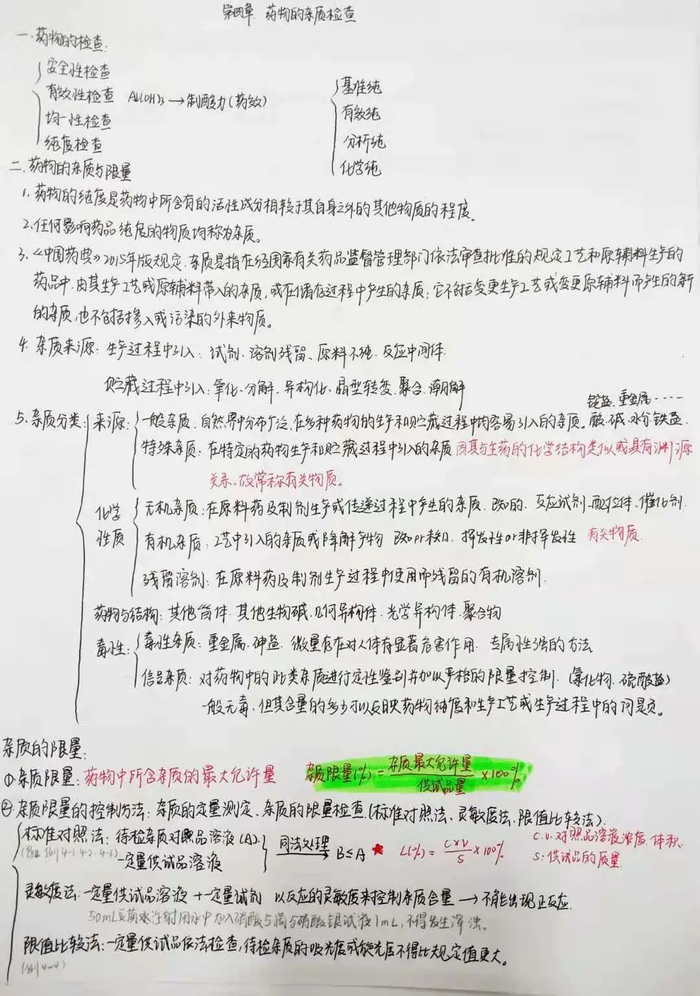 第四章 药物的杂质检查
一.药物的检查:
安全性检查
有效性检查 Al(OH)3→制酸力(药效)
均一性检查
纯度检查
基准纯
有效纯
分析纯
化学纯
二.药物的杂质与限量
1.药物的纯度是药物中所含有的活性成分相较于其自身之外的其他物质的程度。
2.任何影响药品纯度的物质均称为杂质。
3.《中国药典》2015年版规定.杂质是指在经国家有关药品监督管理部门依法审查批准的规定工艺和原辅料生产的
药品中,由其生产工艺或原辅料带入的杂质,或在储存过程中产生的杂质;它不包括变更生产工艺或变更原辅料而产生的新
的杂质,也不包括掺入或污染的外来物质。
4.杂质来源:生产过程中引入:试剂.溶剂残留、原料不纯.反应中间体.
贮藏过程中引入:氧化.分解.异构化.晶型转变.聚合.潮解
重金属····
5.杂质分类:
来源:
一般杂质.自然界中分布广泛.在多种药物的生产和贮藏过程中均容易引入的杂质.酸.碱.水分.铁盐.
特殊杂质:在特定的药物生产和贮藏过程中引入的杂质 因其与主药的化学结构类似或具有渊源
关系.故常称有关物质。
化学性质
无机杂质:在原料药及制剂生产或传递过程中产生的杂质.已知的.反应试剂.配位体.催化剂.
有机杂质.工艺中引入的杂质或降解产物 已知or未知.挥发性or非挥发性 有关物质.
残留溶剂:在原料药及制剂生产过程中使用而残留的有机溶剂.
药物与结构:其他甾体.其他生物碱.几何异构体.光学异构体.聚合物
毒性:
毒性杂质:重金属.砷盐.微量存在对人体有显著危害作用.专属性强的方法
信号杂质:对药物中的此类杂质进行定性鉴别并加以严格的限量控制.(氯化物.硫酸盐)
一般无毒.但其含量的多少可以反映药物纯度和生产工艺或生产过程中的问题.
杂质的限量:
①杂质限量:药物中所含杂质的最大允许量 杂质限量(%)=杂质最大允许量/供试品量×100%
②杂质限量的控制方法:杂质的定量测定.杂质的限量检查(标准对照法、灵敏度法、限值比较法).
标准对照法:待检杂质对照品溶液(A).
一定量供试品溶液
同法处理 B≤A ★ L(%)=C×V/S×100%
C.V.对照品溶液浓度.体积.
S:供试品的质量
灵敏度法:一定量供试品溶液+一定量试剂 以反应的灵敏度来控制杂质含量→不能出现正反应.
50mL灭菌水注射用水中加入硝酸5滴与硝酸银试液1mL,不得发生浑浊。
限值比较法:一定量供试品依法检查,待检杂质的吸光度或旋光度不得比规定值更大。
(例4-4)